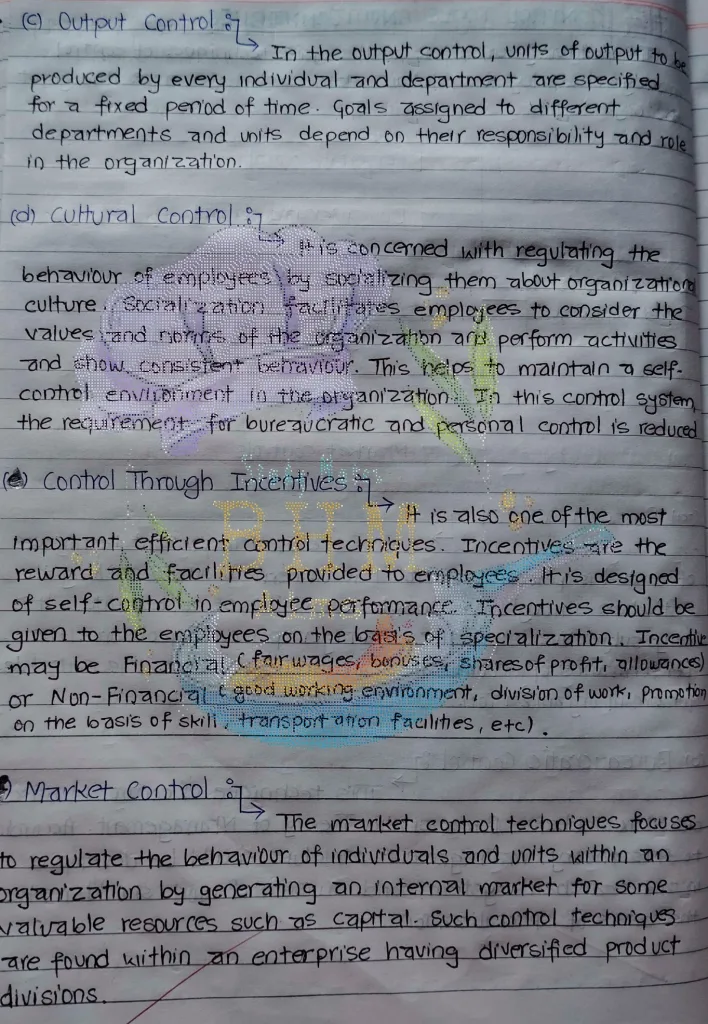 (c) Output Control :-
In the output control, units of output to be
produced by every individual and department are specified
for a fixed period of time. Goals assigned to different
departments and units depend on their responsibility and role
in the organization.
(d) Cultural Control :-
It is concerned with regulating the
behaviour of employees by socializing them about organizational
culture. Socialization facilitates employees to consider the
values and norms of the organization and perform activities
and show consistent behaviour. This helps to maintain a self-
control environment in the organization. In this control system,
the requirement for bureaucratic and personal control is reduced
(e) Control Through Incentives :-
It is also one of the most
important efficient control techniques. Incentives are the
reward and facilities provided to employees. It is designed
of self-control in employee performance. Incentives should be
given to the employees on the basis of specialization. Incentive
may be Financial (fair wages, bonuses, shares of profit, allowances)
or Non-Financial (good working environment, division of work, promotion
on the basis of skill, transportation facilities, etc).
BHM
Market Control :-
The market control techniques focuses
to regulate the behaviour of individuals and units within an
organization by generating an internal market for some
valuable resources such as capital. Such control techniques
are found within an enterprise having diversified product
divisions.